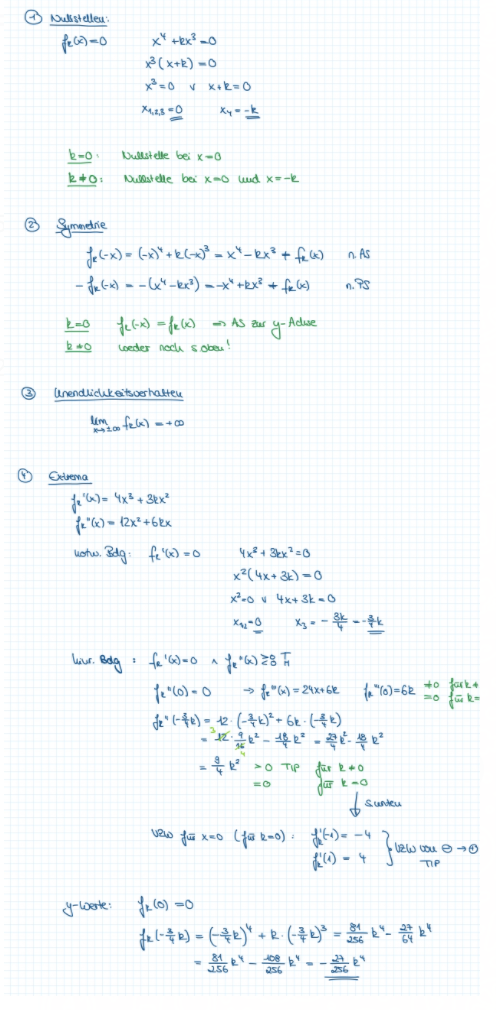 ① Nullstellen:
fₖ(x)=0   x⁴+kx³=0
x³(x+k)=0
x³=0 ∨ x+k=0
x₁,₂,₃=0   x₄=-k
k=0: Nullstelle bei x=0
k≠0: Nullstelle bei x=0 und x=-k
② Symmetrie
fₖ(-x) = (-x)⁴+k(-x)³ = x⁴-kx³ ≠ fₖ(x)   n. AS
-fₖ(-x) = -(x⁴-kx³) = -x⁴+kx³ ≠ fₖ(x)   n. PS
k=0   fₖ(-x) = fₖ(x) ⇒ AS zur y-Achse
k≠0   weder noch s. oben!
③ Unendlichkeitsverhalten
lim x→±∞ fₖ(x) = +∞
④ Extrema
fₖ'(x) = 4x³+3kx²
fₖ''(x) = 12x²+6kx
notw. Bdg: fₖ'(x)=0   4x³+3kx²=0
x²(4x+3k)=0
x²=0 ∨ 4x+3k=0
x₁,₂=0   x₃=-3k/4=-3/4k
hinr. Bdg: fₖ'(x)=0 ∧ fₖ''(x)≷0 T H
fₖ''(0)=0   → fₖ'''(x)=24x+6k   fₖ'''(0)=6k ≠0 für k≠
=0 für k=
fₖ''(-3/4k) = 12·(-3/4k)²+6k·(-3/4k)
= 12·9/16k²-18/4k² = 27/4k²-18/4k²
3 4
= 9/4 k²   >0 TIP   für k≠0
=0   für k=0
s. unten
VZW für x=0 (für k=0): fₖ'(-1)=-4
fₖ'(1)=4   VZW von ⊖→⊕
TIP
y-Werte: fₖ(0)=0
fₖ(-3/4k) = (-3/4k)⁴+k·(-3/4k)³ = 81/256k⁴-27/64k⁴
= 81/256k⁴-108/256k⁴ = -27/256k⁴